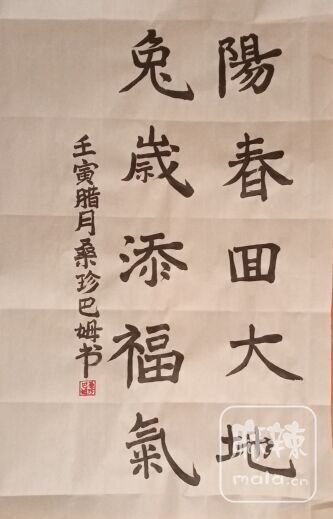 陽春回大地
兔歲添福氣
壬寅腊月桑珍巴姆书
麻辣
mala.cn